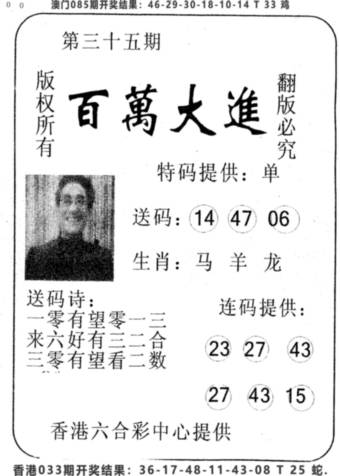 澳门085期开奖结果：46-29-30-18-10-14 T 33 鸡
第三十五期
版权所有
百萬大進
翻版必究
特码提供：单
送码：14 47 06
生肖：马 羊 龙
送码诗：
一零有望零一三
来六好有三二合
三零有望看二数
连码提供：
23 27 43
27 43 15
香港六合彩中心提供
香港033期开奖结果：36-17-48-11-43-08 T 25 蛇.